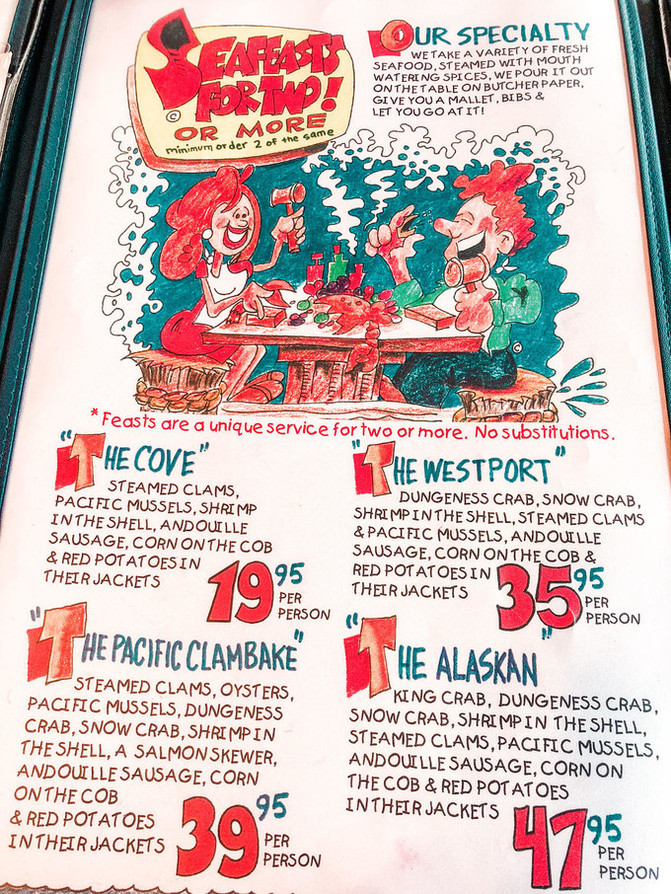 SEAFEASTS
FOR TWO!
©
OR MORE
minimum order 2 of the same
OUR SPECIALTY
WE TAKE A VARIETY OF FRESH
SEAFOOD, STEAMED WITH MOUTH
WATERING SPICES, WE POUR IT OUT
ON THE TABLE ON BUTCHER PAPER,
GIVE YOU A MALLET, BIBS &
LET YOU GO AT IT!
©
*Feasts are a unique service for two or more. No substitutions.
"THE COVE"
STEAMED CLAMS,
PACIFIC MUSSELS, SHRIMP
IN THE SHELL, ANDOUILLE
SAUSAGE, CORN ON THE COB
& RED POTATOES IN
THEIR JACKETS
19 95
PER
PERSON
"THE WESTPORT"
DUNGENESS CRAB, SNOW CRAB,
SHRIMP IN THE SHELL, STEAMED CLAMS
& PACIFIC MUSSELS, ANDOUILLE
SAUSAGE, CORN ON THE COB &
RED POTATOES IN
THEIR JACKETS
35 95
PER
PERSON
"THE PACIFIC CLAMBAKE"
STEAMED CLAMS, OYSTERS,
PACIFIC MUSSELS, DUNGENESS
CRAB, SNOW CRAB, SHRIMP IN
THE SHELL, A SALMON SKEWER,
ANDOUILLE SAUSAGE, CORN
ON THE COB
& RED POTATOES
IN THEIR JACKETS
39 95
PER
PERSON
"THE ALASKAN"
KING CRAB, DUNGENESS CRAB,
SNOW CRAB, SHRIMP IN THE SHELL,
STEAMED CLAMS, PACIFIC MUSSELS,
ANDOUILLE SAUSAGE, CORN ON
THE COB & RED POTATOES
IN THEIR JACKETS
47 95
PER
PERSON